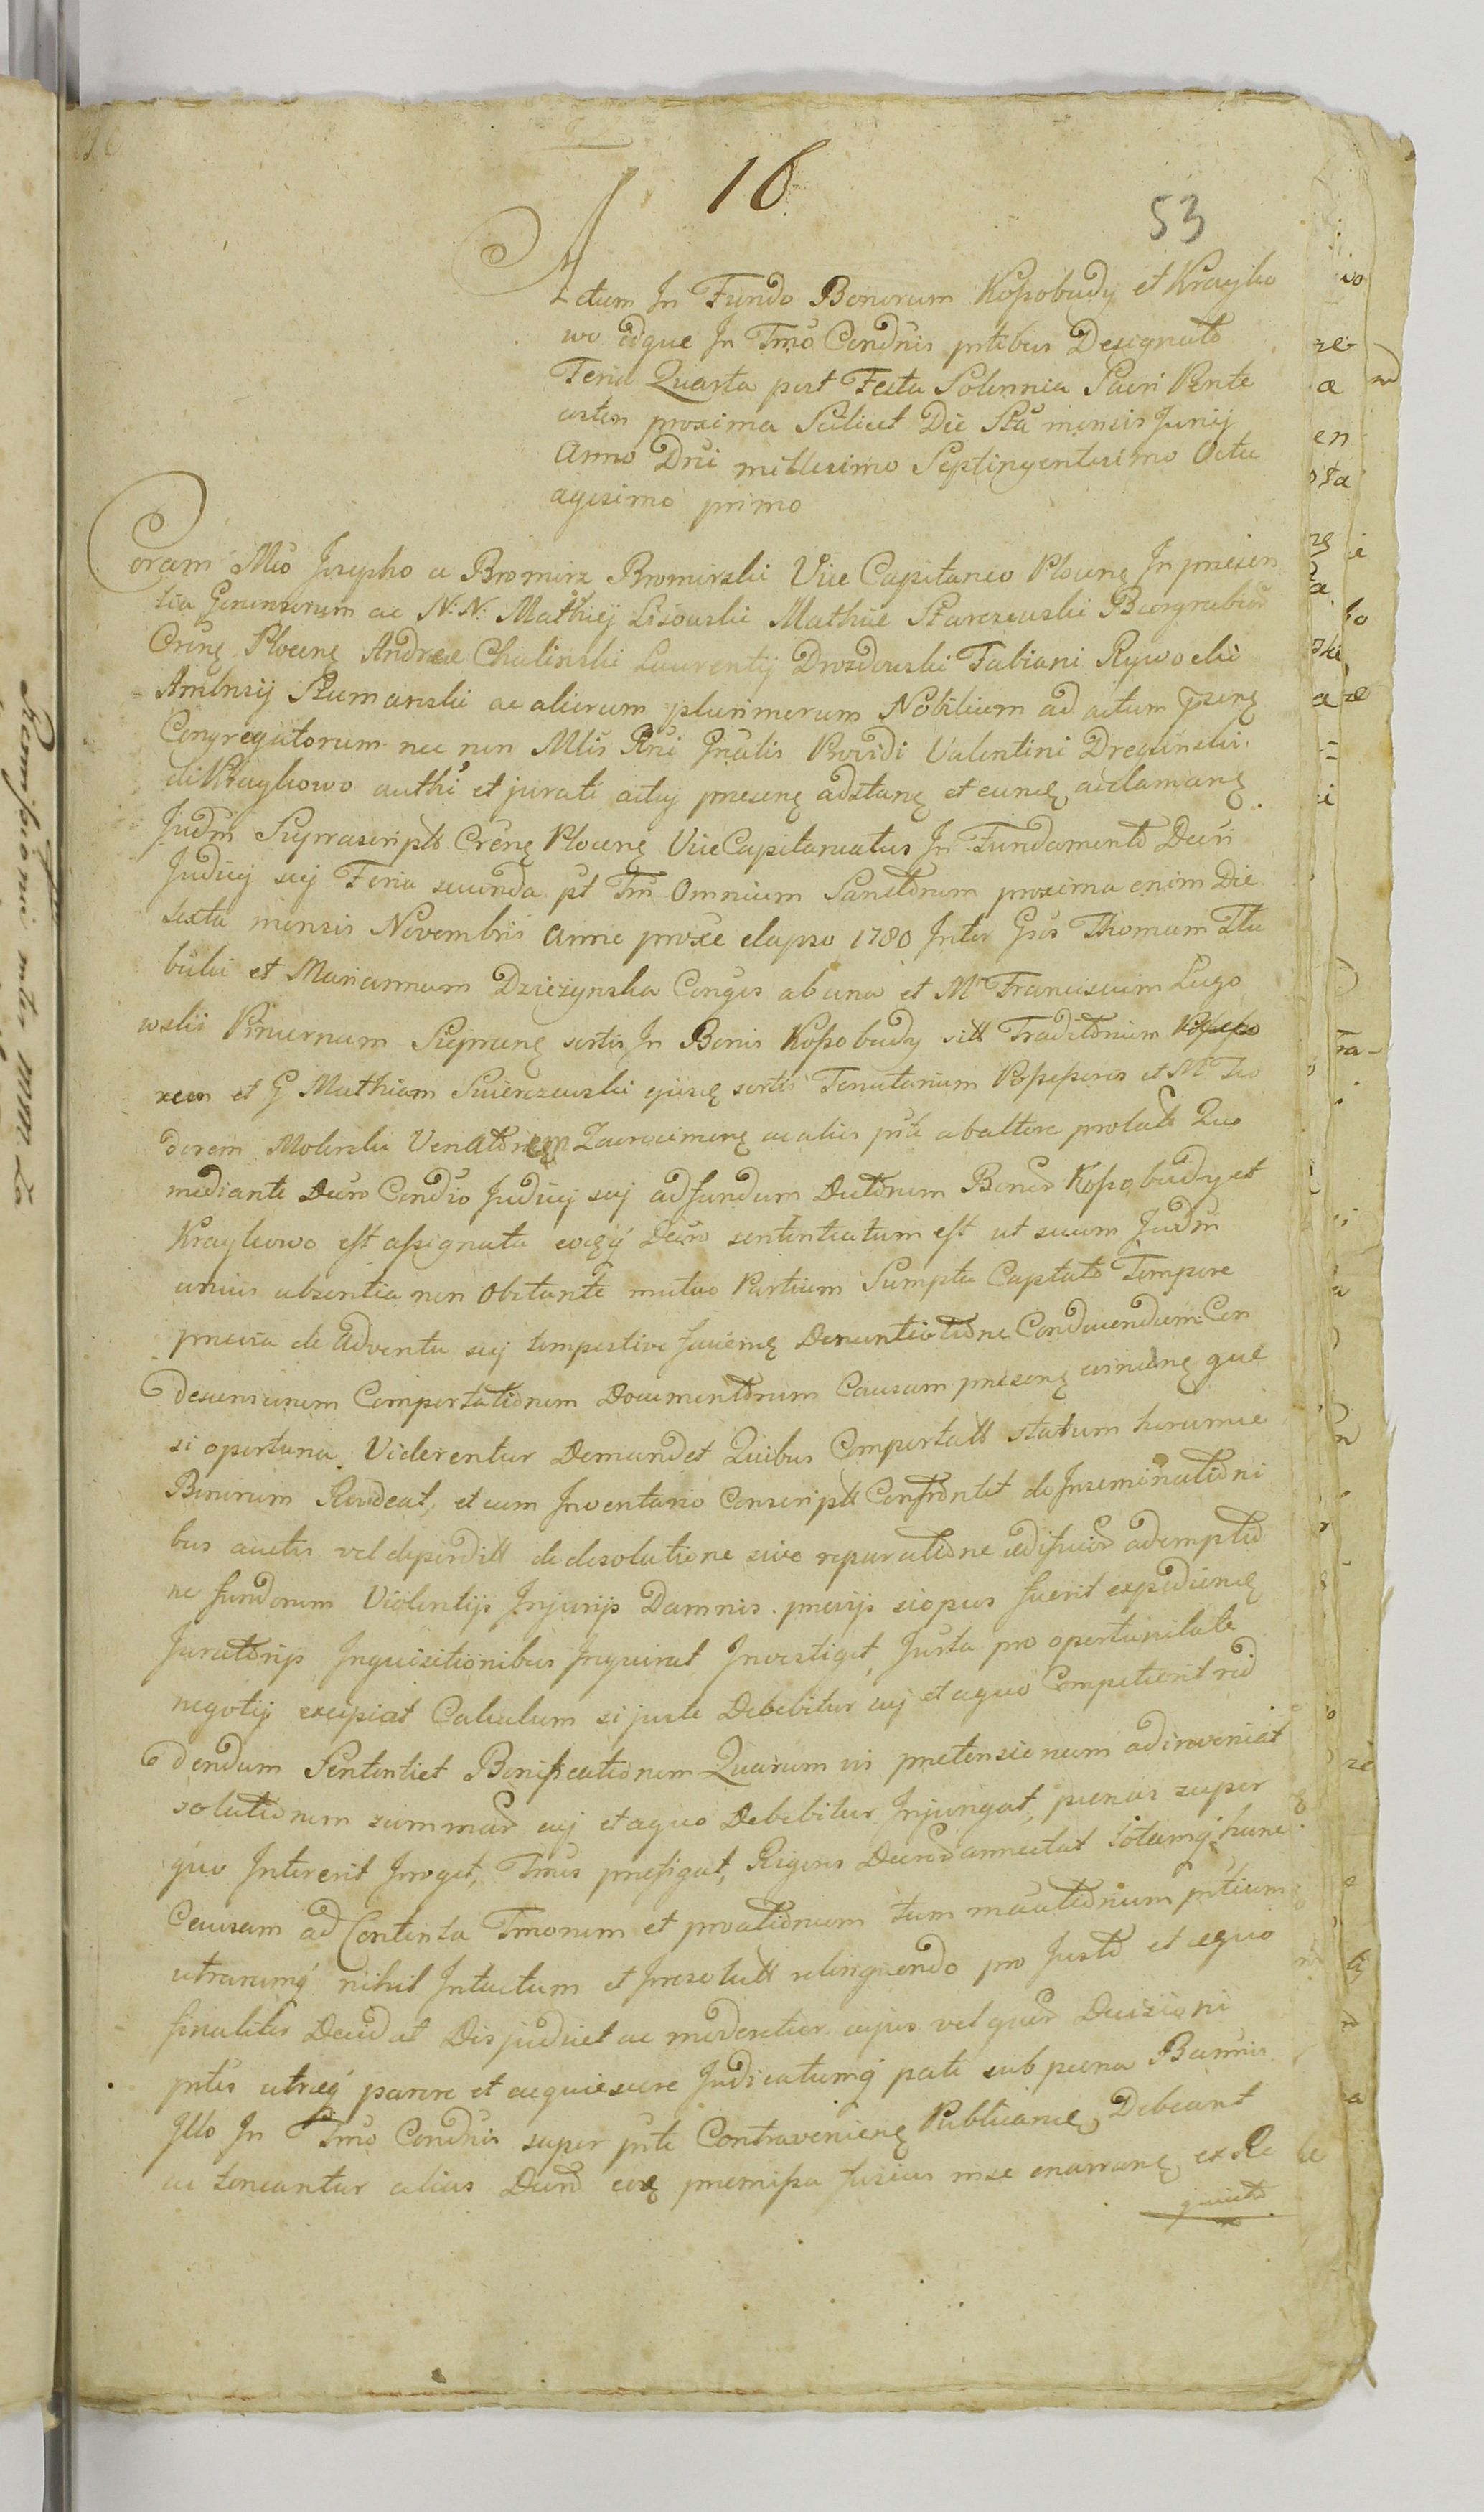 16
53
Actum In Fundo Bonorum Kossobudy et Krayko
wo idque In Tmo Condnis ptibus Designato
Feria Quarta post Festa Solennia Sacri Pente
costes proxima Scilicet Die 6ta mensis Junij
Anno Dni millesimo Septingentesimo Octu
agesimo primo
Coram Mco Josepho a Bromirz Bromirski Vice Capitaneo Plocen In presen
tia Generosorum ac N: N: Mathiej Lisowski Mathiæ Starczewski Burgrabior
Crens Plocens Andreæ Chalinski Laurentij Drozdowski Fabiani Rywocki
Ambrosij Szumanski ac aliorum plurimorum Nobilium ad actum psens
Congregatorum nec non Mlis Rni Gnalis Providi Valentini Dreglinski
di Kraykowo authi et jurati actuj presens adstans et eundem acclamans
Judm Suprascriptt Crens Plocens Vice Capitaneatus In Fundamento Decri
Judicij sui Feria secunda pt Tm Omnium Sanctorum proxima enim Die
sexta mensis Novembris Anno proxe elapso 1780 Inter Gsos Thomam Stu
bicki et Mariannam Dzieżynska Conges ab una et M Franciscum Lugo
wski Pincernam Sieprcens sortis In Bonis Kossobudy sitt Traditorium
xem et G Mathiam Swierczewski ejusdem sortis Tenutarium Possessores et M Teo
dorem Molenski Venatorem Zawscrimens ac alijs pte ab altera prolato Quo
mediante Decro Condio Judicij sui ad fundum Dictorum Bonor Kossobudy et
Kraykowo est assignata eoqq Decro sententiatum est ut suum Judm
unius absentia non Obstante mutuo Partium Sumptu Captato Tempore
previa de Adventu sui tempestive faciens Denuntiatione Conducendum Con
descensionem Comportationem Documentorum Causam presens evinciens quæ
si oportuna Viderentur Demandet Quibus Comportatt statum horumce
Bonorum Revideat, et cum Inventario Conscriptt Confrontet de Inseminationi
bus auctis vel deperditt de desolatione sive reparatione ædificior ademptio
ne fundorum Violentijs Injurijs Damnis previjs si opus fuerit expediens
Juratorijs Inquisitionibus Inquirat Investiget, Justa pro oportunitate
negotij excipiat Calculum si juste Debebitur cuj et aquo Competierit red
dendum Sententiet Bonificationem Quarum vi pretensionum adinveniat
solutionem summar cuj et aquo Debebitur Injungat, pœnas super
quo Intererit Irroget, Tmos prefigat, Rigens Decro annectat totamq hanc
Causam ad Contenta Tmorum et proationum tum meationum ptium
utrarumq nihil Intactum et Inresolutt relinquendo pro Justo et æquo
finaliter Decidat Disjudicet ac moderetur cujus vel quor Decisioni
ptes utræq parere et acquiescere Judicatumq pati sub pœna Bannis
Illo In Tmo Condnis super pte Contraveniens Publicans Debeant
ac teneantur alias Decro eoq premissa fusius in se enarrans ex Re
quisito